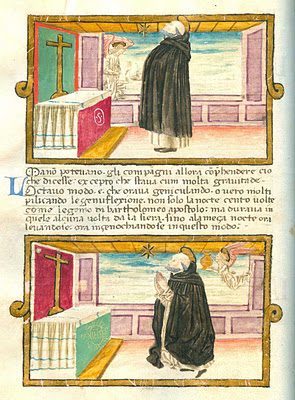 Ma nō poteuano. gli compagni allora cōphendere cio
che dicesse: excepto che staua cum molta grauitade ~
L octauo modo. e. che oraua geniculando. o uero multi
plicando le genuflexione. non solo la nocte cento uolte
come legemo di bartholomeo apostolo: ma duraua in
quele alcuna uolta da la siera. fino ala meça nocte ora
leuantose: ora ingenochiandose in questo modo.